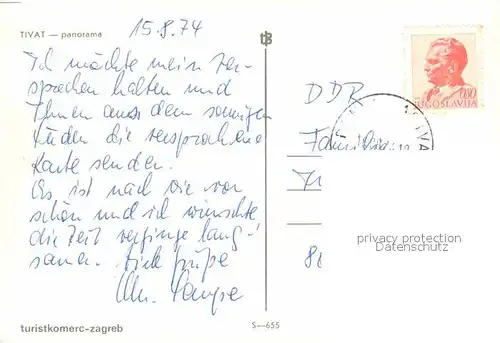 TIVAT — panorama
15.8.74
Ich möchte mein Ver-
sprechen halten und
Ihnen aus dem sonnigen
Süden die versprochene
Karte senden.
Es ist nach wie vor
schön und ich wünschte
die Zeit verginge lang-
samer. Viele Grüße
turistkomerc-zagreb
S—655
DDR
Familie
0,80
JUGOSLAVIJA
TIVA
privacy protection
Datenschutz